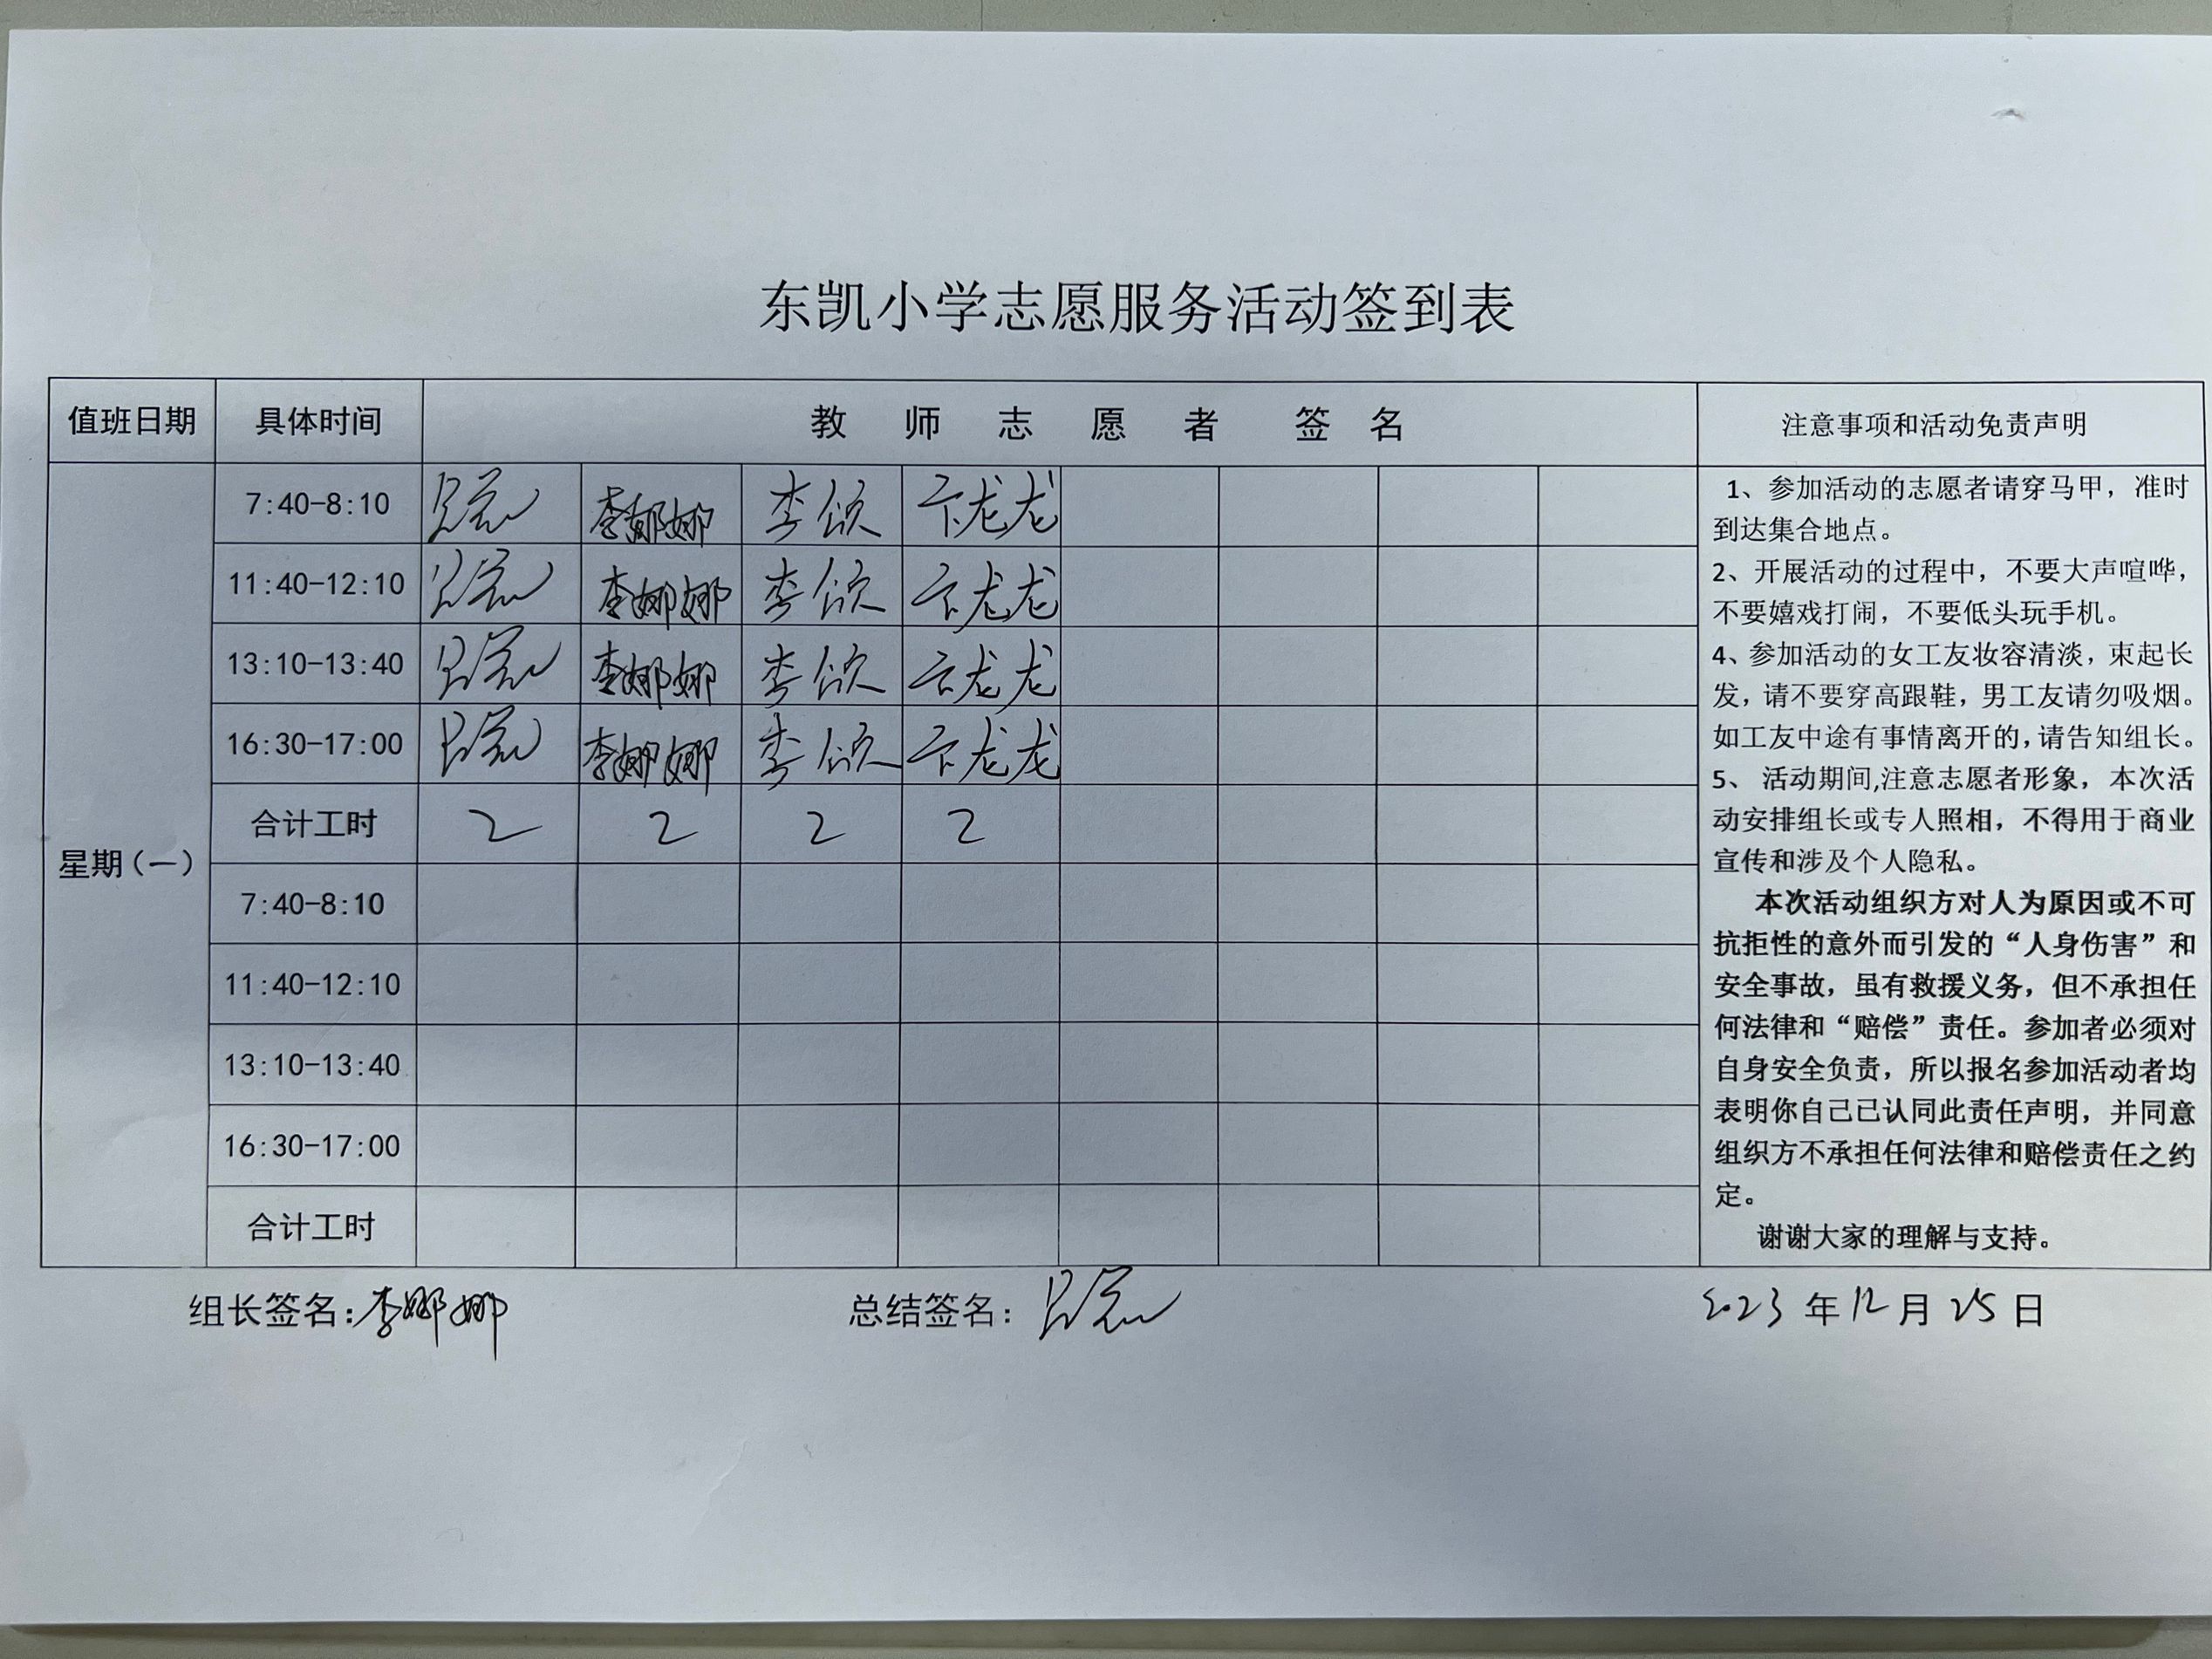 东凯小学志愿服务活动签到表
值班日期 具体时间 教师志愿者 签名 注意事项和活动免责声明
星期(一)
7:40-8:10 李娜娜 李欣 卞龙龙
11:40-12:10 李娜娜 李欣 卞龙龙
13:10-13:40 李娜娜 李欣 卞龙龙
16:30-17:00 李娜娜 李欣 卞龙龙
合计工时 2 2 2 2
7:40-8:10
11:40-12:10
13:10-13:40
16:30-17:00
合计工时
1、参加活动的志愿者请穿马甲，准时
到达集合地点。
2、开展活动的过程中，不要大声喧哗，
不要嬉戏打闹，不要低头玩手机。
4、参加活动的女工友妆容清淡，束起长
发，请不要穿高跟鞋，男工友请勿吸烟。
如工友中途有事情离开的,请告知组长。
5、 活动期间,注意志愿者形象，本次活
动安排组长或专人照相，不得用于商业
宣传和涉及个人隐私。
本次活动组织方对人为原因或不可
抗拒性的意外而引发的“人身伤害”和
安全事故，虽有救援义务，但不承担任
何法律和“赔偿”责任。参加者必须对
自身安全负责，所以报名参加活动者均
表明你自己已认同此责任声明，并同意
组织方不承担任何法律和赔偿责任之约
定。
谢谢大家的理解与支持。
组长签名:李娜娜 总结签名: 2023年12月25日